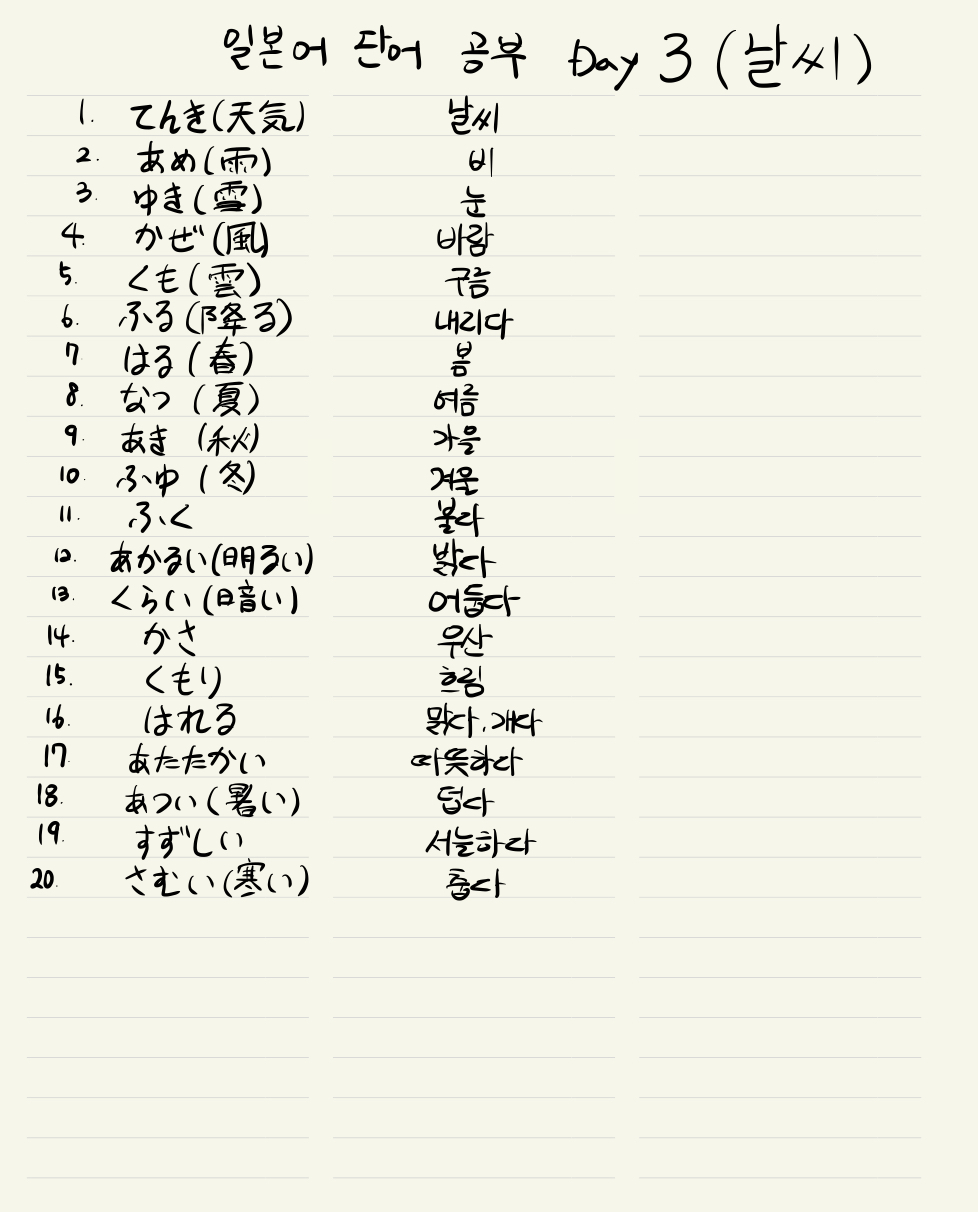 일본어 단어 공부 Day 3 (날씨)
1. てんき(天気) 날씨
2. あめ(雨) 비
3. ゆき(雪) 눈
4. かぜ(風) 바람
5. くも(雲) 구름
6. ふる(降る) 내리다
7. はる(春) 봄
8. なつ (夏) 여름
9. あき (秋) 가을
10. ふゆ (冬) 겨울
11. ふく 불다
12. あかるい(明るい) 밝다
13. くらい(暗い) 어둡다
14. かさ 우산
15. くもり 흐림
16. はれる 맑다, 개다
17. あたたかい 따뜻하다
18. あつい(暑い) 덥다
19. すずしい 서늘하다
20. さむい(寒い) 춥다